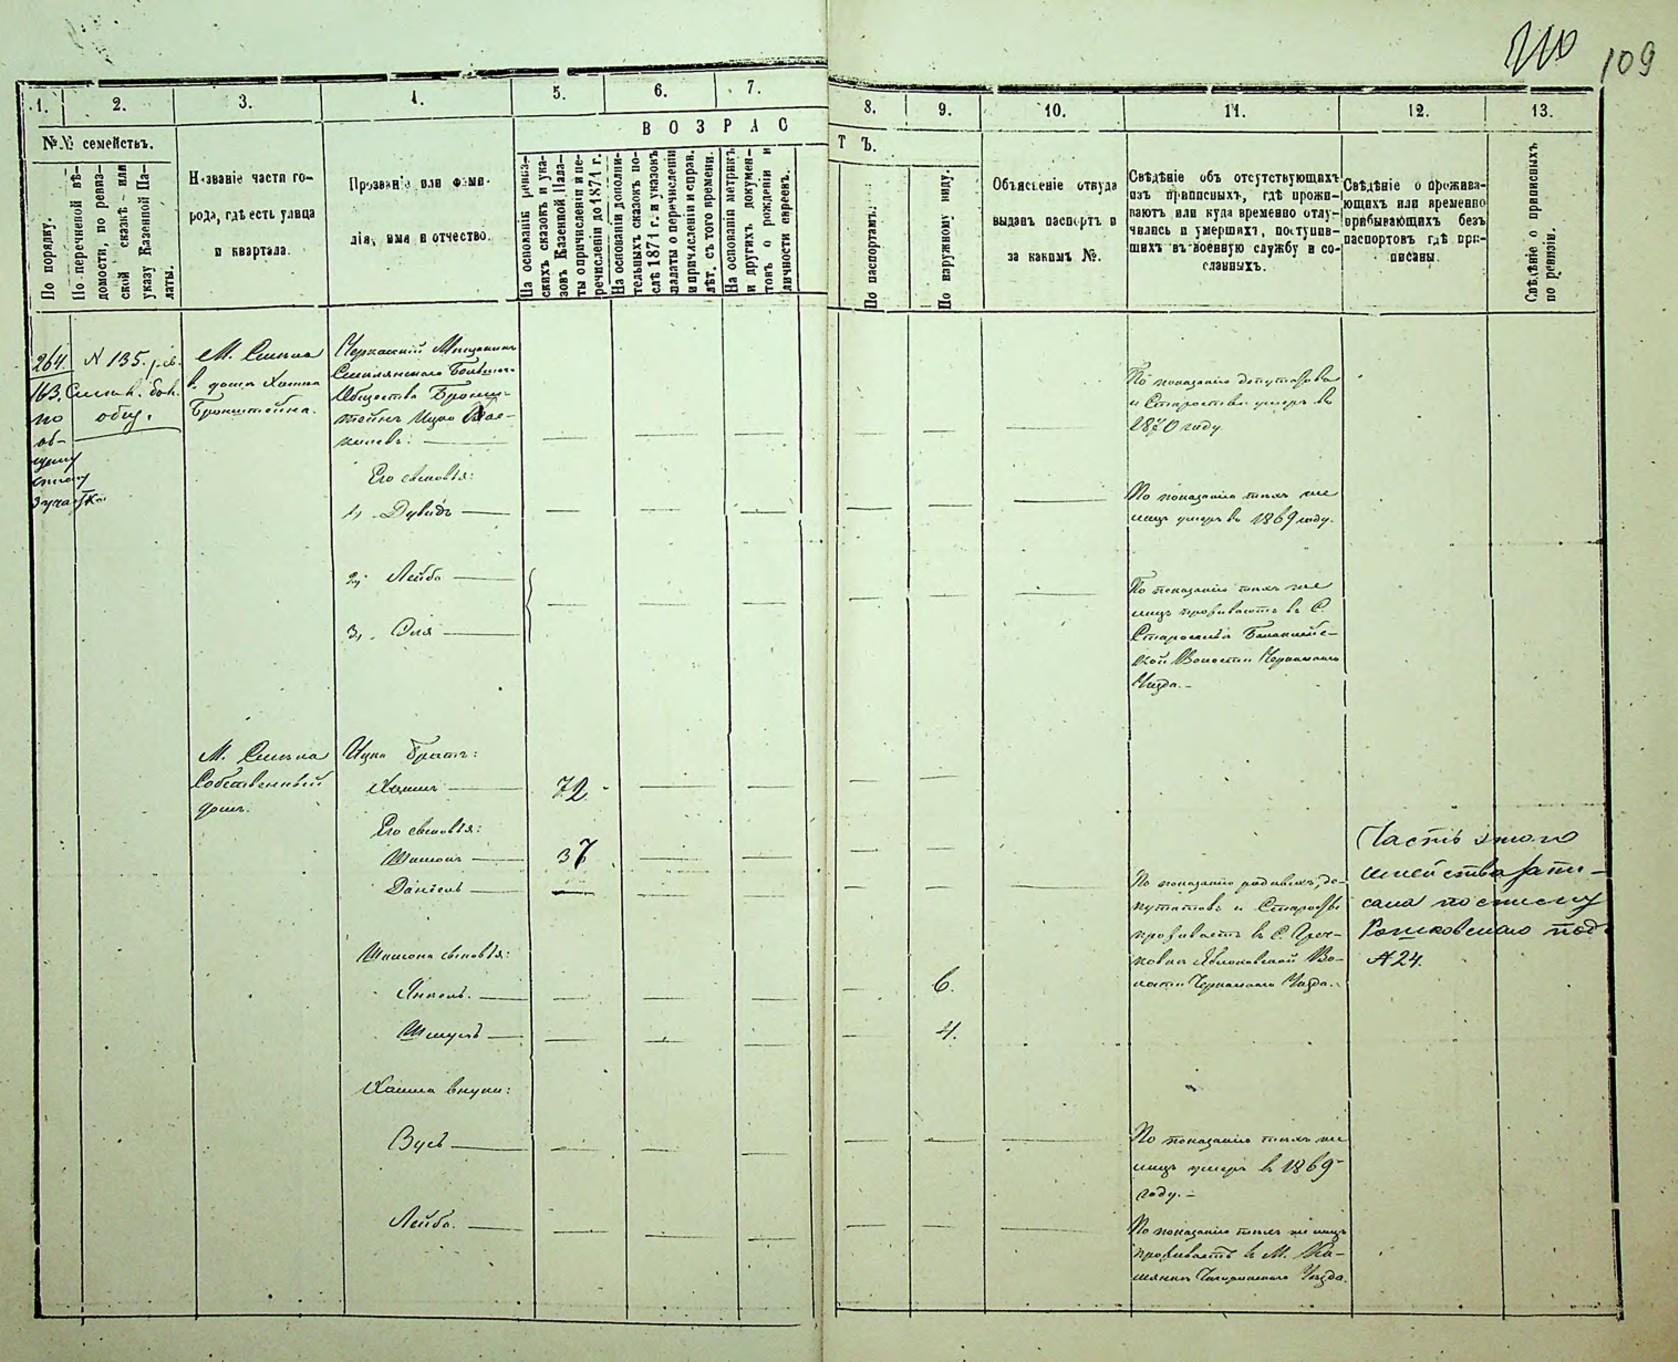 210 109
1. 2. 3. 4. 5. 6. 7. 8. 9. 10. 11. 12. 13.
№№ семействъ.
По порядку.
По перечневой вѣ-
домости, по ревиз-
ской сказкѣ или
указу Казенной Па-
латы.
Названіе части го-
рода, гдѣ есть улица
и квартала.
Прозваніе или фами-
лія, имя и отчество.
ВОЗРАС
ТЪ.
На основаніи ревиз-
скихъ сказокъ и ука-
зовъ Казенной Пала-
ты о причисленіи и пе-
речисленіи до 1871 г.
На основаніи дополни-
тельныхъ сказокъ по-
слѣ 1871 г. и указовъ
палаты о перечисленіи
и причисленіи и справ.
лѣт. съ того времени.
На основаніи метрикъ
и другихъ докумен-
товъ о рожденіи и
личности евреевъ.
По паспортамъ.
По наружному виду.
Объясненіе откуда
выданъ паспортъ и
за какимъ №.
Свѣдѣніе объ отсутствующихъ
изъ приписныхъ, гдѣ прожи-
ваютъ или куда временно отлу-
чились и умершихъ, поступив-
шихъ въ военную службу и со-
сланныхъ.
Свѣдѣніе о прожива-
ющихъ или временно
прибывающихъ безъ
паспортовъ гдѣ при-
писаны.
Свѣдѣніе о приписныхъ
по ревизіи.
264.
163.
по
об-
участка
N 135. рев.
общ.
М. Смѣла
в. домѣ Хаима
Бронштейна.
Черкаскій Мѣщанинъ
Смѣлянскаго
Общества Бронш-
тейнъ Ицко
Его сыновья:
1, Дувидъ
2, Лейба
3, Эля
По показанію депутатовъ
и Старосты умеръ въ
1870 году
По показанію тѣхъ же
лицъ умеръ въ 1869 году.
По показанію тѣхъ же
лицъ проживаютъ въ С.
Староселья Балаклей-
ской Волости Черкаскаго
Уѣзда.
М. Смѣла
Собственный
домъ.
Ицка братъ:
Хаимъ 72
Его сыновья:
Шимонъ 37
Даніель
По показанію раввина, де-
путатовъ и Старосты
проживаетъ въ С.
Волости Черкаскаго Уѣзда.
Часть этого
семейства запи-
сана по списку
Рашковскаго под
№ 24.
Шимона сыновья:
Янкель. 6.
Шмуль 4.
Хаима внуки:
Вусь
По показанію тѣхъ же
лицъ умеръ въ 1869
году.
Лейба.
По показанію тѣхъ же лицъ
проживаетъ въ М. Ка-
мянкѣ Чигиринскаго Уѣзда.